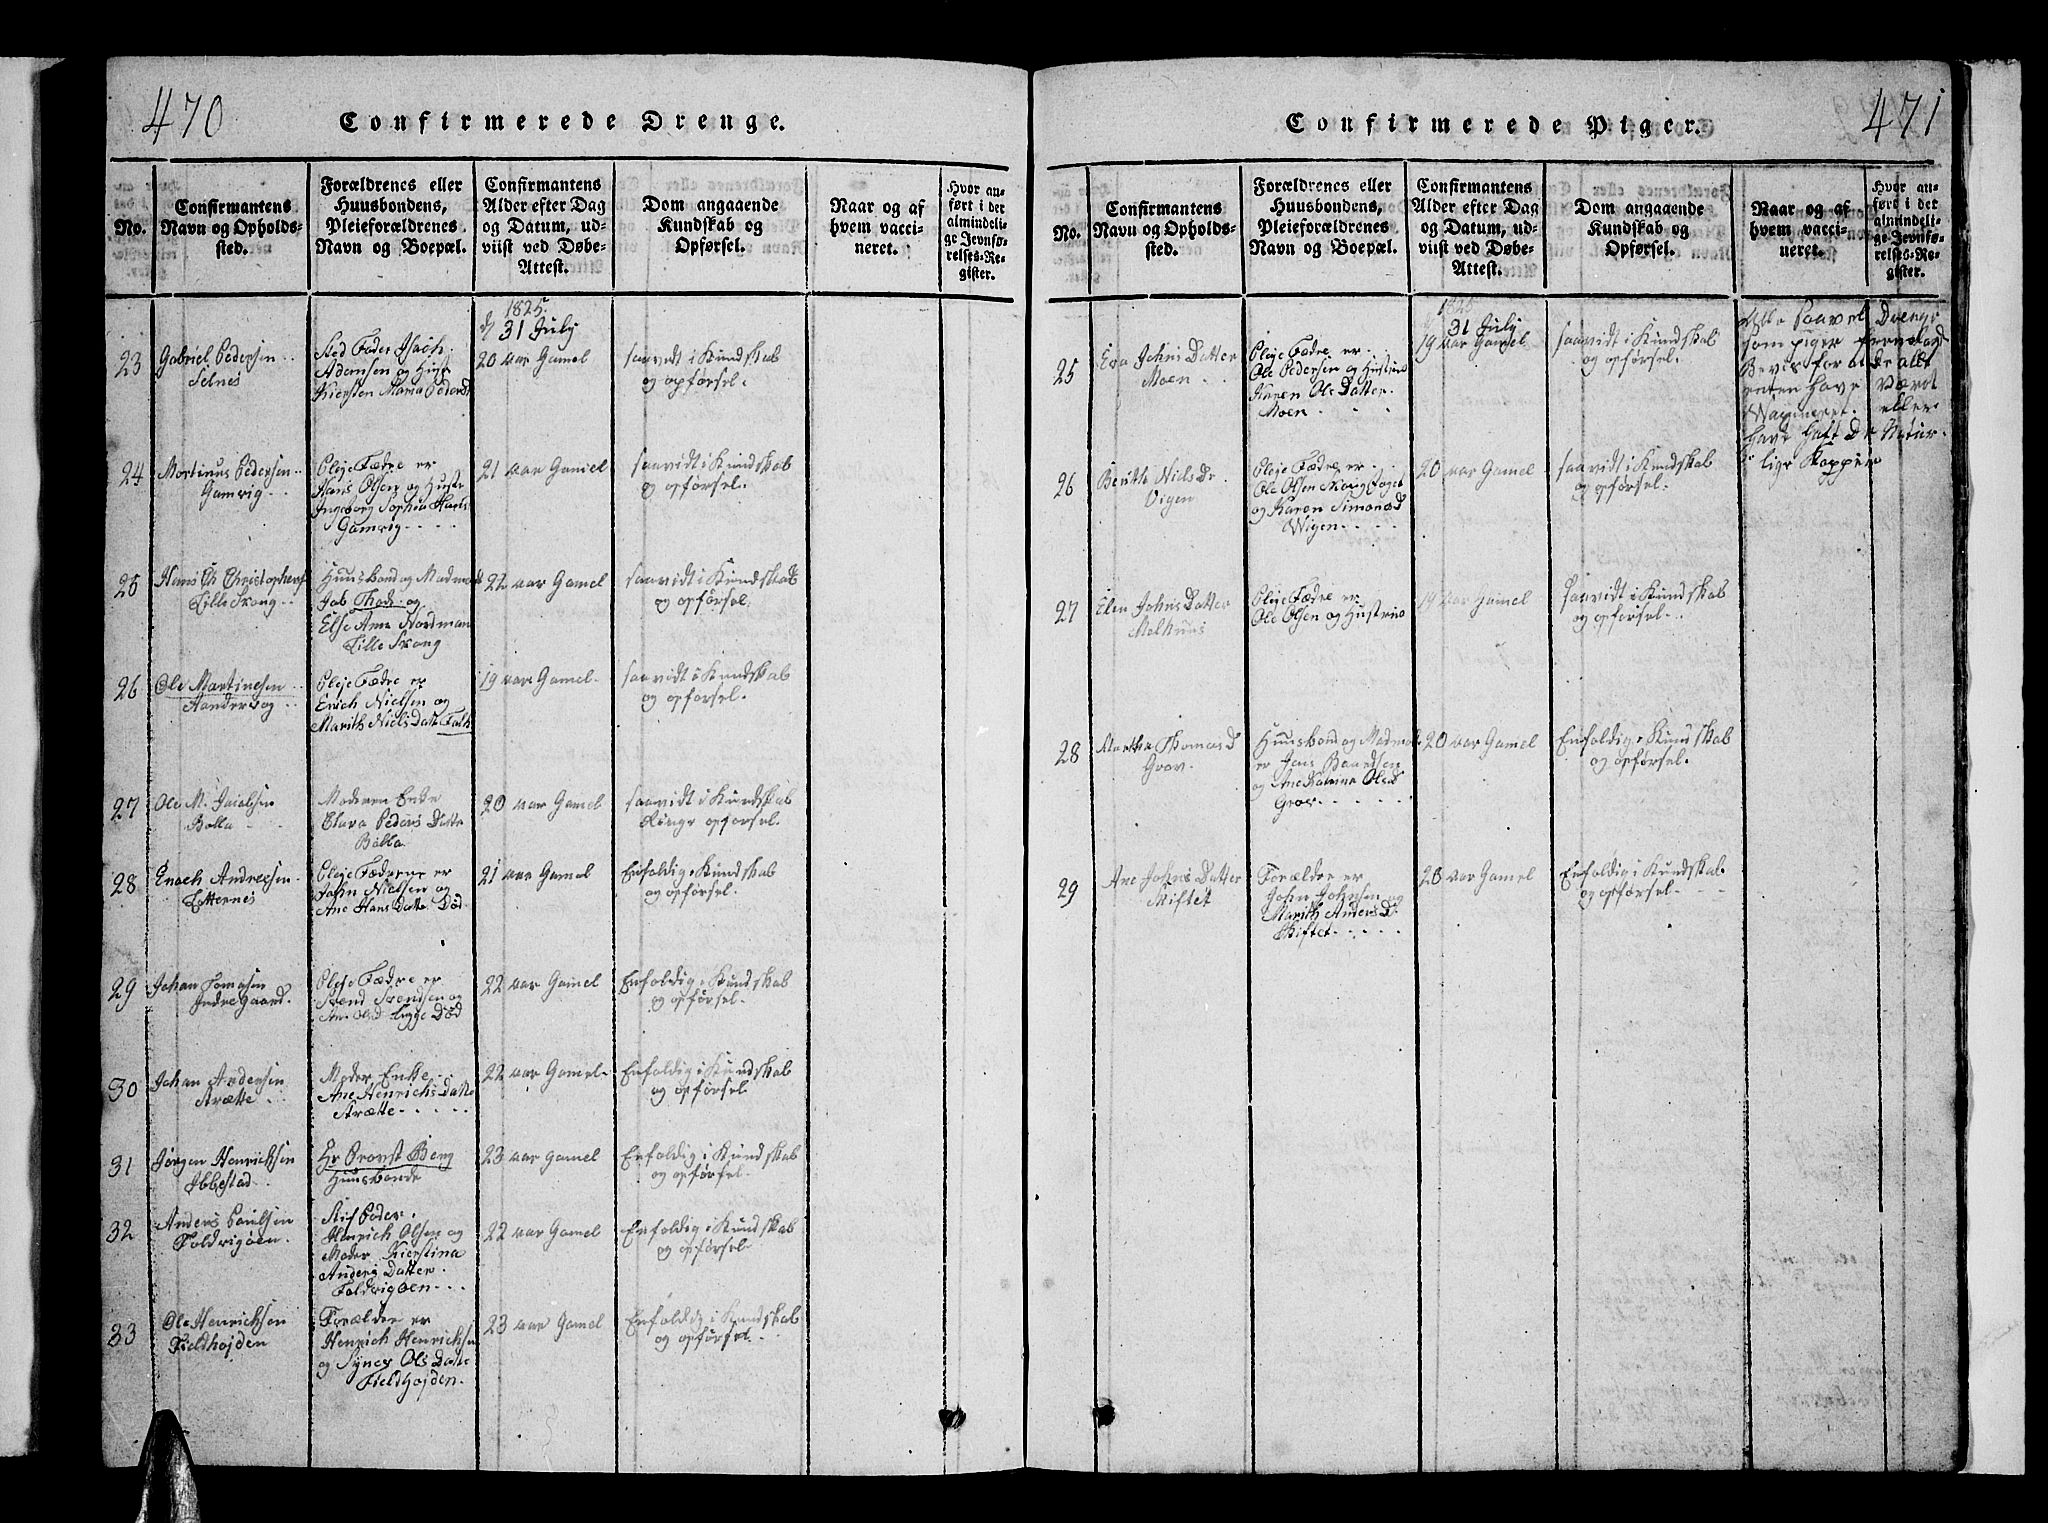 470
Confirmerede Drenge.
No.
Confirmantens
Navn og Opholds-
sted.
Forældrenes eller
Huusbondens,
Pleieforældrenes
Navn og Boepæl.
Confirmantens
Alder efter Dag
og Datum, ud-
viist ved Døbe-
Attest.
Dom angaaende
Kundskab og
Opførsel.
Naar og af
hvem vacci-
neret.
Hvor an-
ført i det
almindeli-
ge Jevnfø-
relses-Re-
gister.
1825.
31 July
23
Gabriel Pedersen
Selnes
Sted Fader Isach
Adamsen og
Kiersten Maria
20 aar Gamel
saavidt i Kundskab
og opførsel.
24
Mortinus Pedersen
Gamvig
Pleje Fædre er
Hans Olsen og
Ingeborg Sophia Hans
Gamvig
21 aar Gamel
saavidt i Kundskab
og opførsel.
25
Hans Ch Christophers
Lille Krong
Huusbond og Madmod
Jab Thode og
Else Ane Nordman
Lille Krong
22 aar Gamel
saavidt i Kundskab
og opførsel.
26
Ole Martinesen
Aandervog
Pleje Fædre er
Erich Nielsen og
Marith Niels Datte
19 aar Gamel
saavidt i Kundskab
og opførsel.
27
Ole M. Jacobsen
Bolla
Moderen Enke
Clara Peders Datte
Bolla
20 aar Gamel
saavidt i Kundskab
Ringe opførsel.
28
Enoch Andreesen
Lotternes
Pleje Fæderne er
John Nielsen og
Ane Hans Datte Død
21 aar Gamel
Enfoldig i Kundskab
og opførsel.
29
Johan Tomasen
Indregaard.
Pleje Fædre er
Svend Svendsen og
Ane Olsd Ligge Død
22 aar Gamel
Enfoldig i Kundskab
og opførsel.
30
Johan Andersen
Strætte
Moder Enke
Ane Henrichs Datte
Strætte
22 aar Gamel
Enfoldig i Kundskab
og opførsel
31
Jørgen Henrichsen
Ibbestad
Hr Provst Berg
Huusbonde
23 aar Gamel
Enfoldig i Kundskab
og opførsel
32
Anders Paulsen
Foldrigøen.
Stif Fader
Henrich Olsen og
Moder Kierstina
Anders Datter
Foldrigøen
22 aar Gamel
Enfoldig i Kundskab
og opførsel
33
Ole Henrichsen
Fieldhøjden
Forældre er
Henrich Henrichsen
og Synes Ols Datte
Fieldhøjden
23 aar Gamel
Enfoldig i Kundskab
og opførsel
471
Confirmerede Piger.
No.
Confirmantens
Navn og Opholds-
sted.
Forældrenes eller
Huusbondens,
Pleieforældrenes
Navn og Boepæl.
Confirmantens
Alder efter Dag
og Datum, ud-
viist ved Døbe-
Attest.
Dom angaaende
Kundskab og
Opførsel.
Naar og af
hvem vacci-
neret.
Hvor an-
ført i det
almindeli-
ge Jevnfø-
relses-Re-
gister.
1825
31 July
25
Eva Johns Datter
Moen
Pleje Fædre er
Ole Pedersen og Hustrue
Karen Ols Datter
Moen
19 aar Gamel
saavidt i Kundskab
og opførsel.
Alle saavel Drenge
som piger
Bevis for at de alle
enten have Været
eller
have haft De Natur-
lige Kopper
26
Berith Niels Dr
Vigen
Pleje Fædre er
Ole Olsen
og Karen Simonsd
Wigen
20 aar Gamel
saavidt i Kundskab
og opførsel
27
Elen Johns Datter
Melhuus
Pleje Fædre er
Ole Olsen og Hustrue
19 aar Gamel
saavidt i Kundskab
og opførsel
28
Martha Thomas D
Grov
Huusbond og Madmod
er Jens Baardsen
og Ane Olsd
Grov
20 aar Gamel
Enfoldig i Kundskab
og opførsel.
29
Ane Johns Datter
Skiftet
Forældre er
John Johnsen og
Marith Anders D
Skiftet
20 aar Gamel
Enfoldig i Kundskab
og opførsel